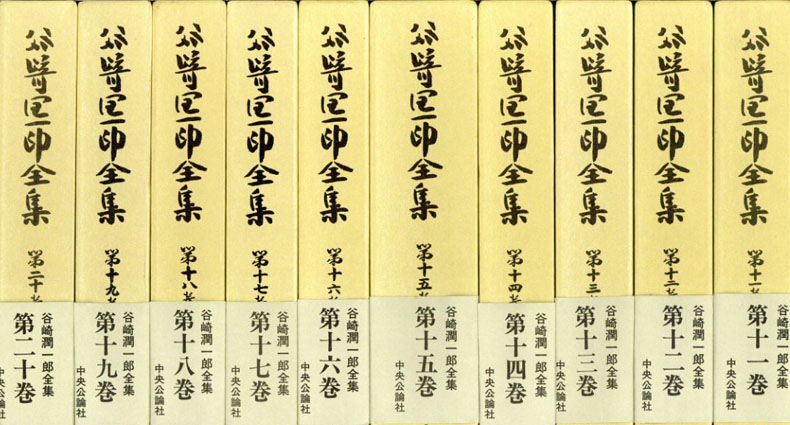 谷崎潤一郎全集 第十一巻
谷崎潤一郎全集
第十一巻
中央公論社
谷崎潤一郎全集 第十二巻
谷崎潤一郎全集
第十二巻
中央公論社
谷崎潤一郎全集 第十三巻
谷崎潤一郎全集
第十三巻
中央公論社
谷崎潤一郎全集 第十四巻
谷崎潤一郎全集
第十四巻
中央公論社
谷崎潤一郎全集 第十五巻
谷崎潤一郎全集
第十五巻
中央公論社
谷崎潤一郎全集 第十六巻
谷崎潤一郎全集
第十六巻
中央公論社
谷崎潤一郎全集 第十七巻
谷崎潤一郎全集
第十七巻
中央公論社
谷崎潤一郎全集 第十八巻
谷崎潤一郎全集
第十八巻
中央公論社
谷崎潤一郎全集 第十九巻
谷崎潤一郎全集
第十九巻
中央公論社
谷崎潤一郎全集 第二十巻
谷崎潤一郎全集
第二十巻
中央公論社